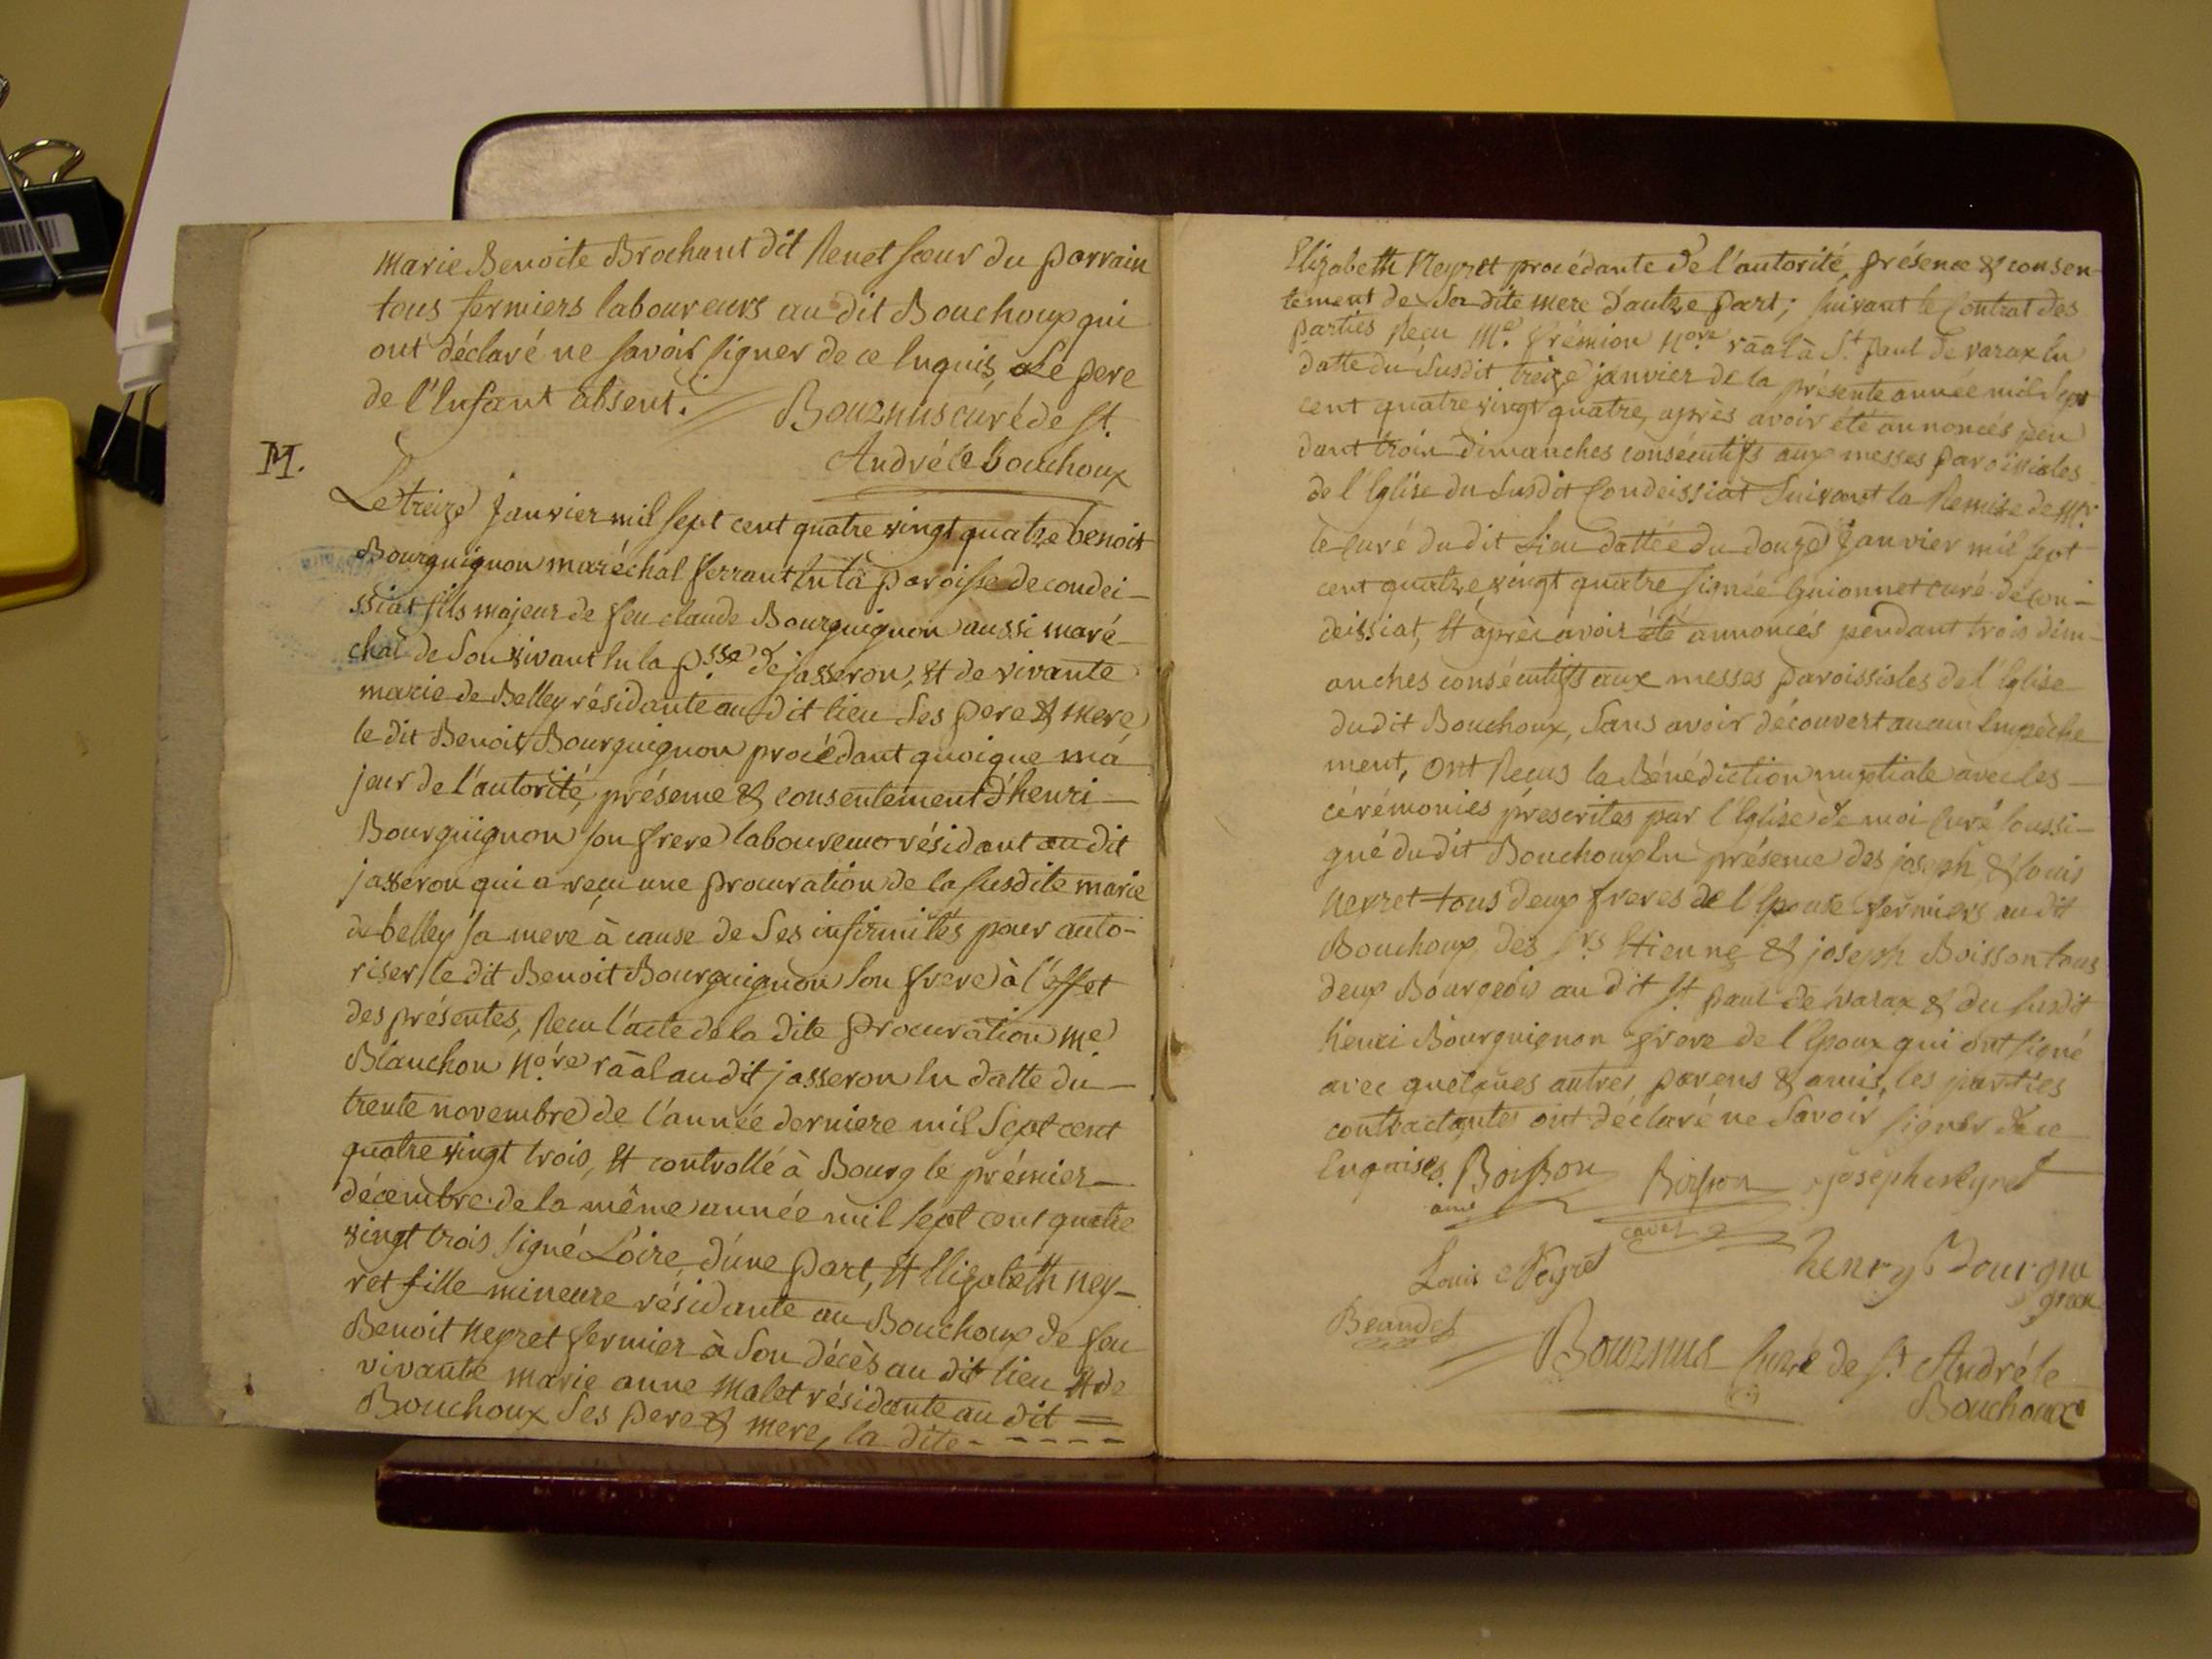 Marie Benoite Brochant dit Renet sœur du parrain
tous fermiers laboureurs au dit Bouchoux qui
ont déclaré ne savoir signer de ce Enquis, Le pere
de l'Enfant absent. Bouznus curé de St.
André le Bouchoux
M.
Le treize Janvier mil sept cent quatre vingt quatre benoit
Bourguignon maréchal ferrant En la paroisse de condei-
ssiat fils majeur de feu claude Bourguignon aussi maré-
chal de son vivant En la psse de jasseron, Et de vivante
marie de Belley résidante au dit lieu Ses pere & mere,
le dit Benoit Bourguignon procédant quoique ma
jeur de l'autorité, présence & consentement d'henri -
Bourguignon son frere laboureur résidant au dit
jasseron qui a reçu une procuration de la susdite marie
de belley sa mere à cause de Ses infirmités pour auto-
riser le dit Benoit Bourguignon Son frere à l'effet
des présentes, Recu l'acte de la dite procuration Me
Blanchon Nore räal au dit jasseron En datte du -
trente novembre de l'année derniere mil Sept cent
quatre vingt trois, Et controllé à Bourg le prémier -
décembre de la même année mil sept cent quatre
vingt trois signé Loire, d'une part, Et Elizabeth ney-
ret fille mineure résidante au Bouchoux de feu
Benoit Neyret fermier à Son décès au dit lieu Et de
vivante marie anne Malet résidante au dit =
Bouchoux Ses pere & mere, la dite - - - - -
Elizabeth Neyret procédante de l'autorité, présence & consen-
tement de Sa dite mere d'autre part; suivant le Contrat des
parties Recu Me. frémion Nore räal à St. paul de varax En
datte du susdit treize janvier de la présente année mil sept
cent quatre vingt quatre, après avoir été annoncés pen
dant trois dimanches consécutifs aux messes paroissiales
de l'Eglise du Susdit Condeissiat Suivant la Remise de Mr.
le curé du dit Lieu dattée du douze Janvier mil sept
cent quatre vingt quatre signée Guionnet curé de con-
deissiat, Et après avoir été annoncés pendant trois dim-
anches consécutifs aux messes paroissiales de l'Eglise
du dit Bouchoux, Sans avoir découvert aucun Empêche
ment, ont Recus la Bénédiction nuptiale avec les -
cérémonies prescrites par l'Eglise de moi Curé soussi-
gné du dit Bouchoux En présence des joseph & louis
Neyret tous deux freres de l'Epouse fermiers au dit
Bouchoux, des Srs Etienne & joseph Boisson tous
deux Bourgeois au dit St. paul de varax & du susdit
henri Bourguignon frere de l'Epoux qui ont signé
avec quelques autres parens & amis, les parties
contractantes ont déclaré ne Savoir signer de ce
Enquises. Boisson Boisson joseph neyret
Louis Neyret henry Bourgui
gnon
Bouznus Curé de St. André le
Bouchoux